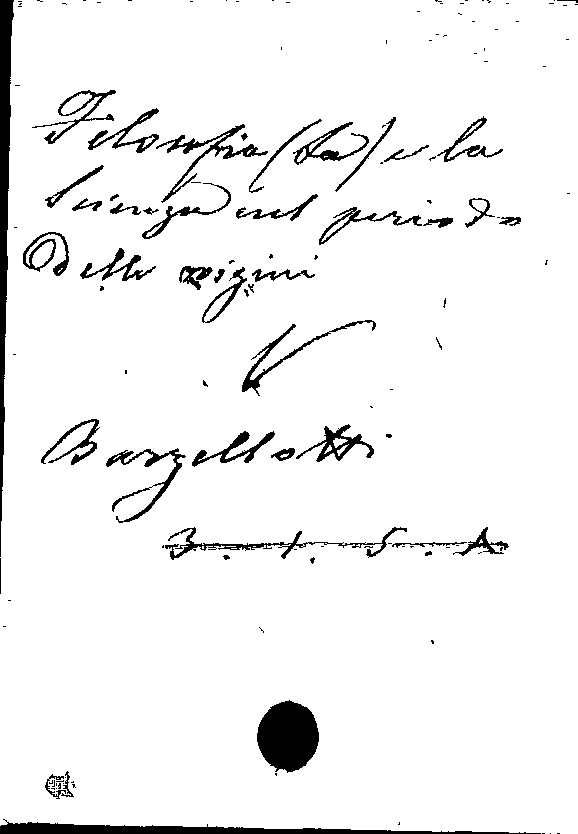 Filosofia (La) e la
Scienza nel periodo
delle origini
V
Barzellotti
3. 1. 5. A